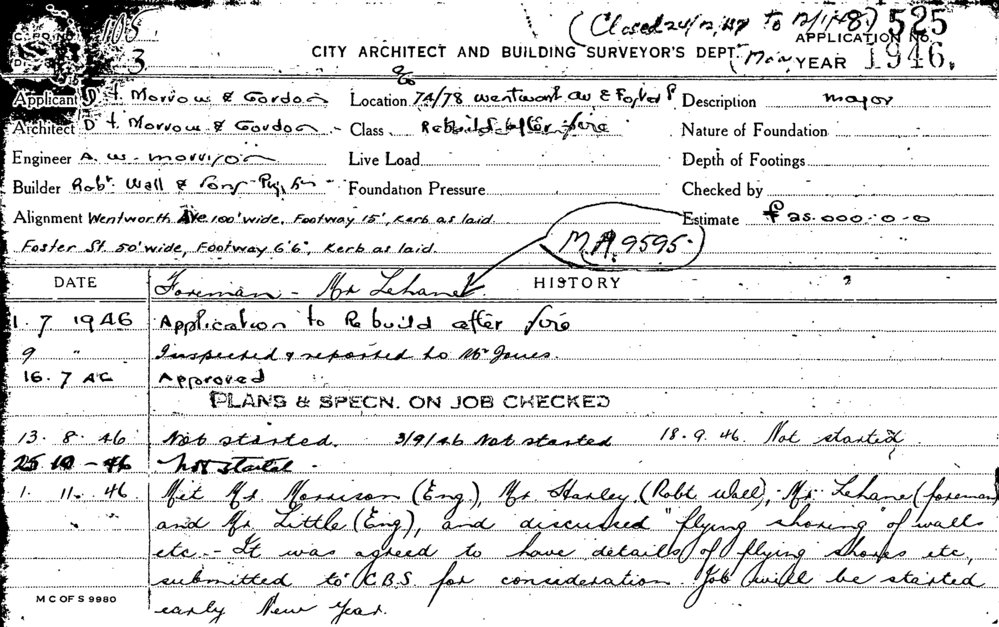 (Closed 24/12/47 to 12/1/48) 525
C. PO. No. 105 APPLICATION NO.
3 CITY ARCHITECT AND BUILDING SURVEYOR'S DEPT. YEAR 1946.
c/o
Applicant D. T. Morrow & Gordon Location 74/78 Wentworth Av & Foster St Description major
Architect D. T. Morrow & Gordon Class Rebuild after fire Nature of Foundation
Engineer A. W. Morrison Live Load Depth of Footings
Builder Robt. Wall & Sons Pty, Foundation Pressure Checked by
Alignment Wentworth Ave 100' wide, Footway 15', Kerb as laid. Estimate £25.000-0-0
Foster St. 50' wide, Footway 6'6", Kerb as laid. M.A. 9595.
DATE HISTORY
Foreman - Mr Lehane.
1. 7 1946 Application to Rebuild after fire
9 " Inspected & reported to Mr Jones.
16. 7 46 Approved
PLANS & SPECN. ON JOB CHECKED
13. 8. 46 Not started. 3/9/46 Not started 18. 9. 46. Not started
25 10 - 46 Not started.
1. 11. 46 Met Mr. Morrison (Eng.), Mr. Hanley (Robt Wall), Mr. Lehane (foreman)
and Mr. Little (Eng), and discussed "flying shoring" of walls
etc. - It was agreed to have details of flying shores etc,
submitted to C.B.S. for consideration. Job will be started
early New Year.
M C OF S 9980